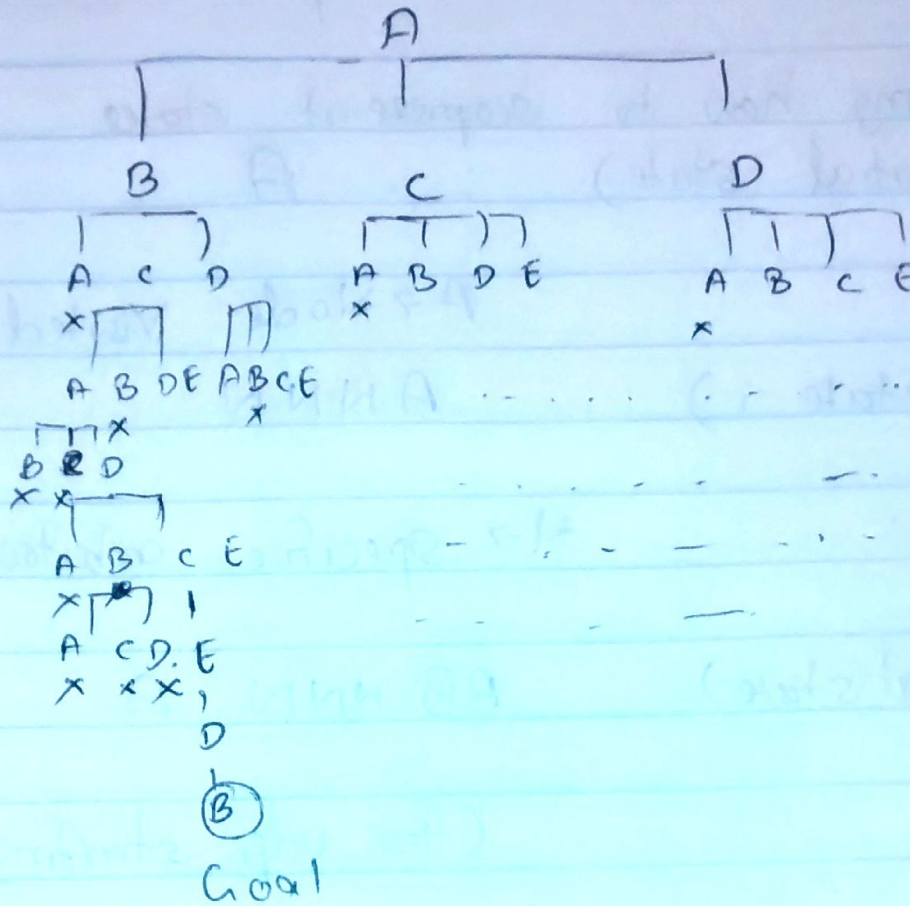 A
B C D
A C D A B D E A B C E
x x x
A B D E A B C E
x x
B D
x x
A B C E
x
A C D. E
x x x
D
B
Goal